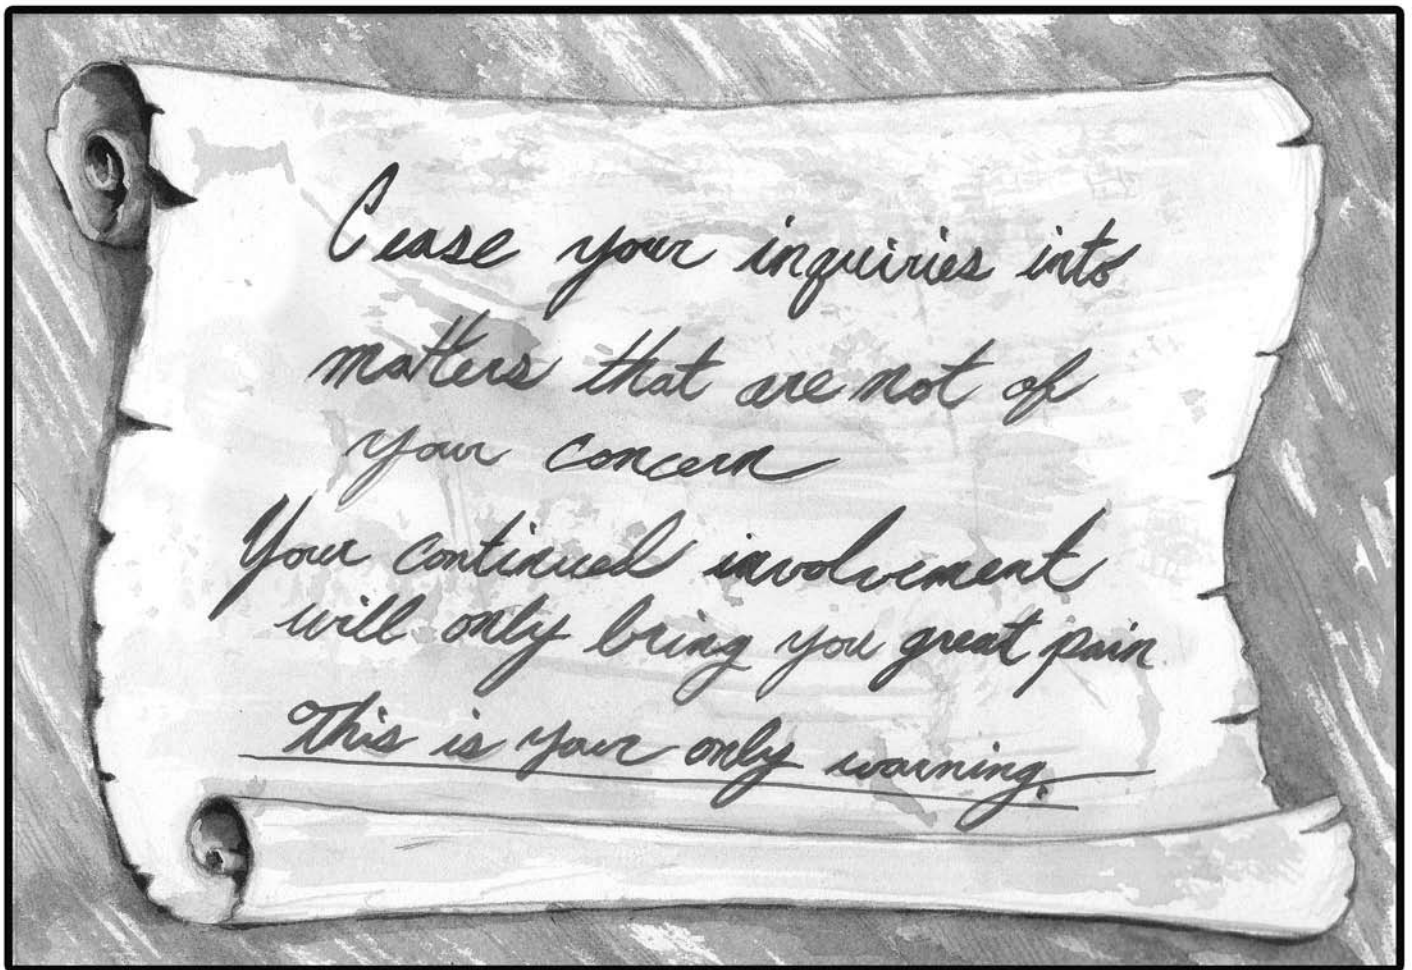 Cease your inquiries into
matters that are not of
your concern
Your continued involvement
will only bring you great pain
This is your only warning.